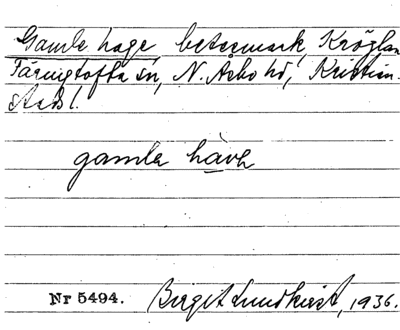 Gamle hage, betesmark, Kröglan
Färingtofta sn, N. Åsbo hd, Kristian-
stads l.
gamla håvh
Nr 5494. Birgit Lundkvist, 1936.